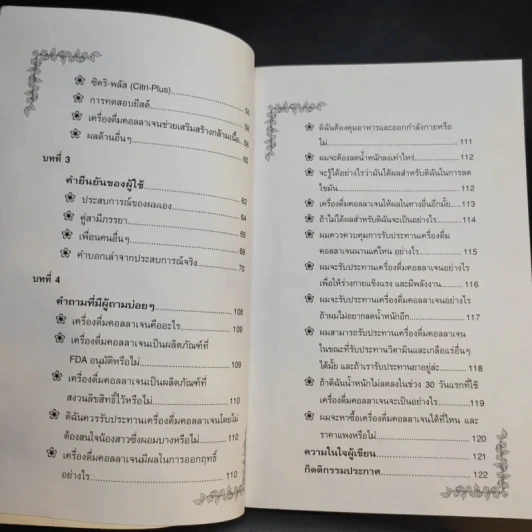 ซิตริ-พลัส (Citri-Plus)
การทดสอบยีสต์ 56
เครื่องดื่มคอลลาเจนช่วยเสริมสร้างกล้ามเนื้อ
ผลด้านอื่นๆ 60
บทที่ 3
คำยืนยันของผู้ใช้ 62
ประสบการณ์ของผมเอง 64
คู่สามีภรรยา 65
เพื่อนคนอื่นๆ 68
คำบอกเล่าจากประสบการณ์จริง 70
บทที่ 4
คำถามที่มีผู้ถามบ่อยๆ 108
เครื่องดื่มคอลลาเจนคืออะไร 109
เครื่องดื่มคอลลาเจนเป็นผลิตภัณฑ์ที่
FDA อนุมัติหรือไม่ 109
เครื่องดื่มคอลลาเจนเป็นผลิตภัณฑ์ที่
สงวนลิขสิทธิ์ไว้หรือไม่ 110
ดิฉันควรรับประทานเครื่องดื่มคอลลาเจนโดยไม่
ต้องสนใจน้องสาวซึ่งผอมบางหรือไม่ 110
เครื่องดื่มคอลลาเจนมีผลในการออกฤทธิ์
อย่างไร 110
ดิฉันต้องคุมอาหารและออกกำลังกายหรือ
ไม่ 111
ผมจะต้องลดน้ำหนักลงเท่าไหร่ 112
จะรู้ได้อย่างไรว่ามันได้ผลสำหรับดิฉันในการลด
ไขมัน 112
เครื่องดื่มคอลลาเจนให้ผลในทางอื่นอีกมั้ย 113
ถ้าไม่ได้ผลสำหรับดิฉันจะเป็นอย่างไร 114
ผมควรควบคุมการรับประทานเครื่องดื่ม
คอลลาเจนนานแค่ไหน อย่างไร 115
ผมจะรับประทานเครื่องดื่มคอลลาเจนอย่างไร
เพื่อให้ร่างกายแข็งแรง และมีพลังงาน 116
ผมจะรับประทานเครื่องดื่มคอลลาเจนอย่างไร
ถ้าผมไม่อยากลดน้ำหนักอีก 117
ผมสามารถรับประทานเครื่องดื่มคอลลาเจน
ในขณะที่รับประทานวิตามินและเกลือแร่อื่นๆ
ได้มั้ย และถ้าเรารับประทานยาอยู่ล่ะ 118
ถ้าดิฉันน้ำหนักไม่ลดลงในช่วง 30 วันแรกที่ใช้
เครื่องดื่มคอลลาเจนจะเป็นอย่างไร 119
ผมจะหาซื้อเครื่องดื่มคอลลาเจนได้ที่ไหน และ
ราคาแพงหรือไม่ 120
ความในใจผู้เขียน 121
กิตติกรรมประกาศ 122